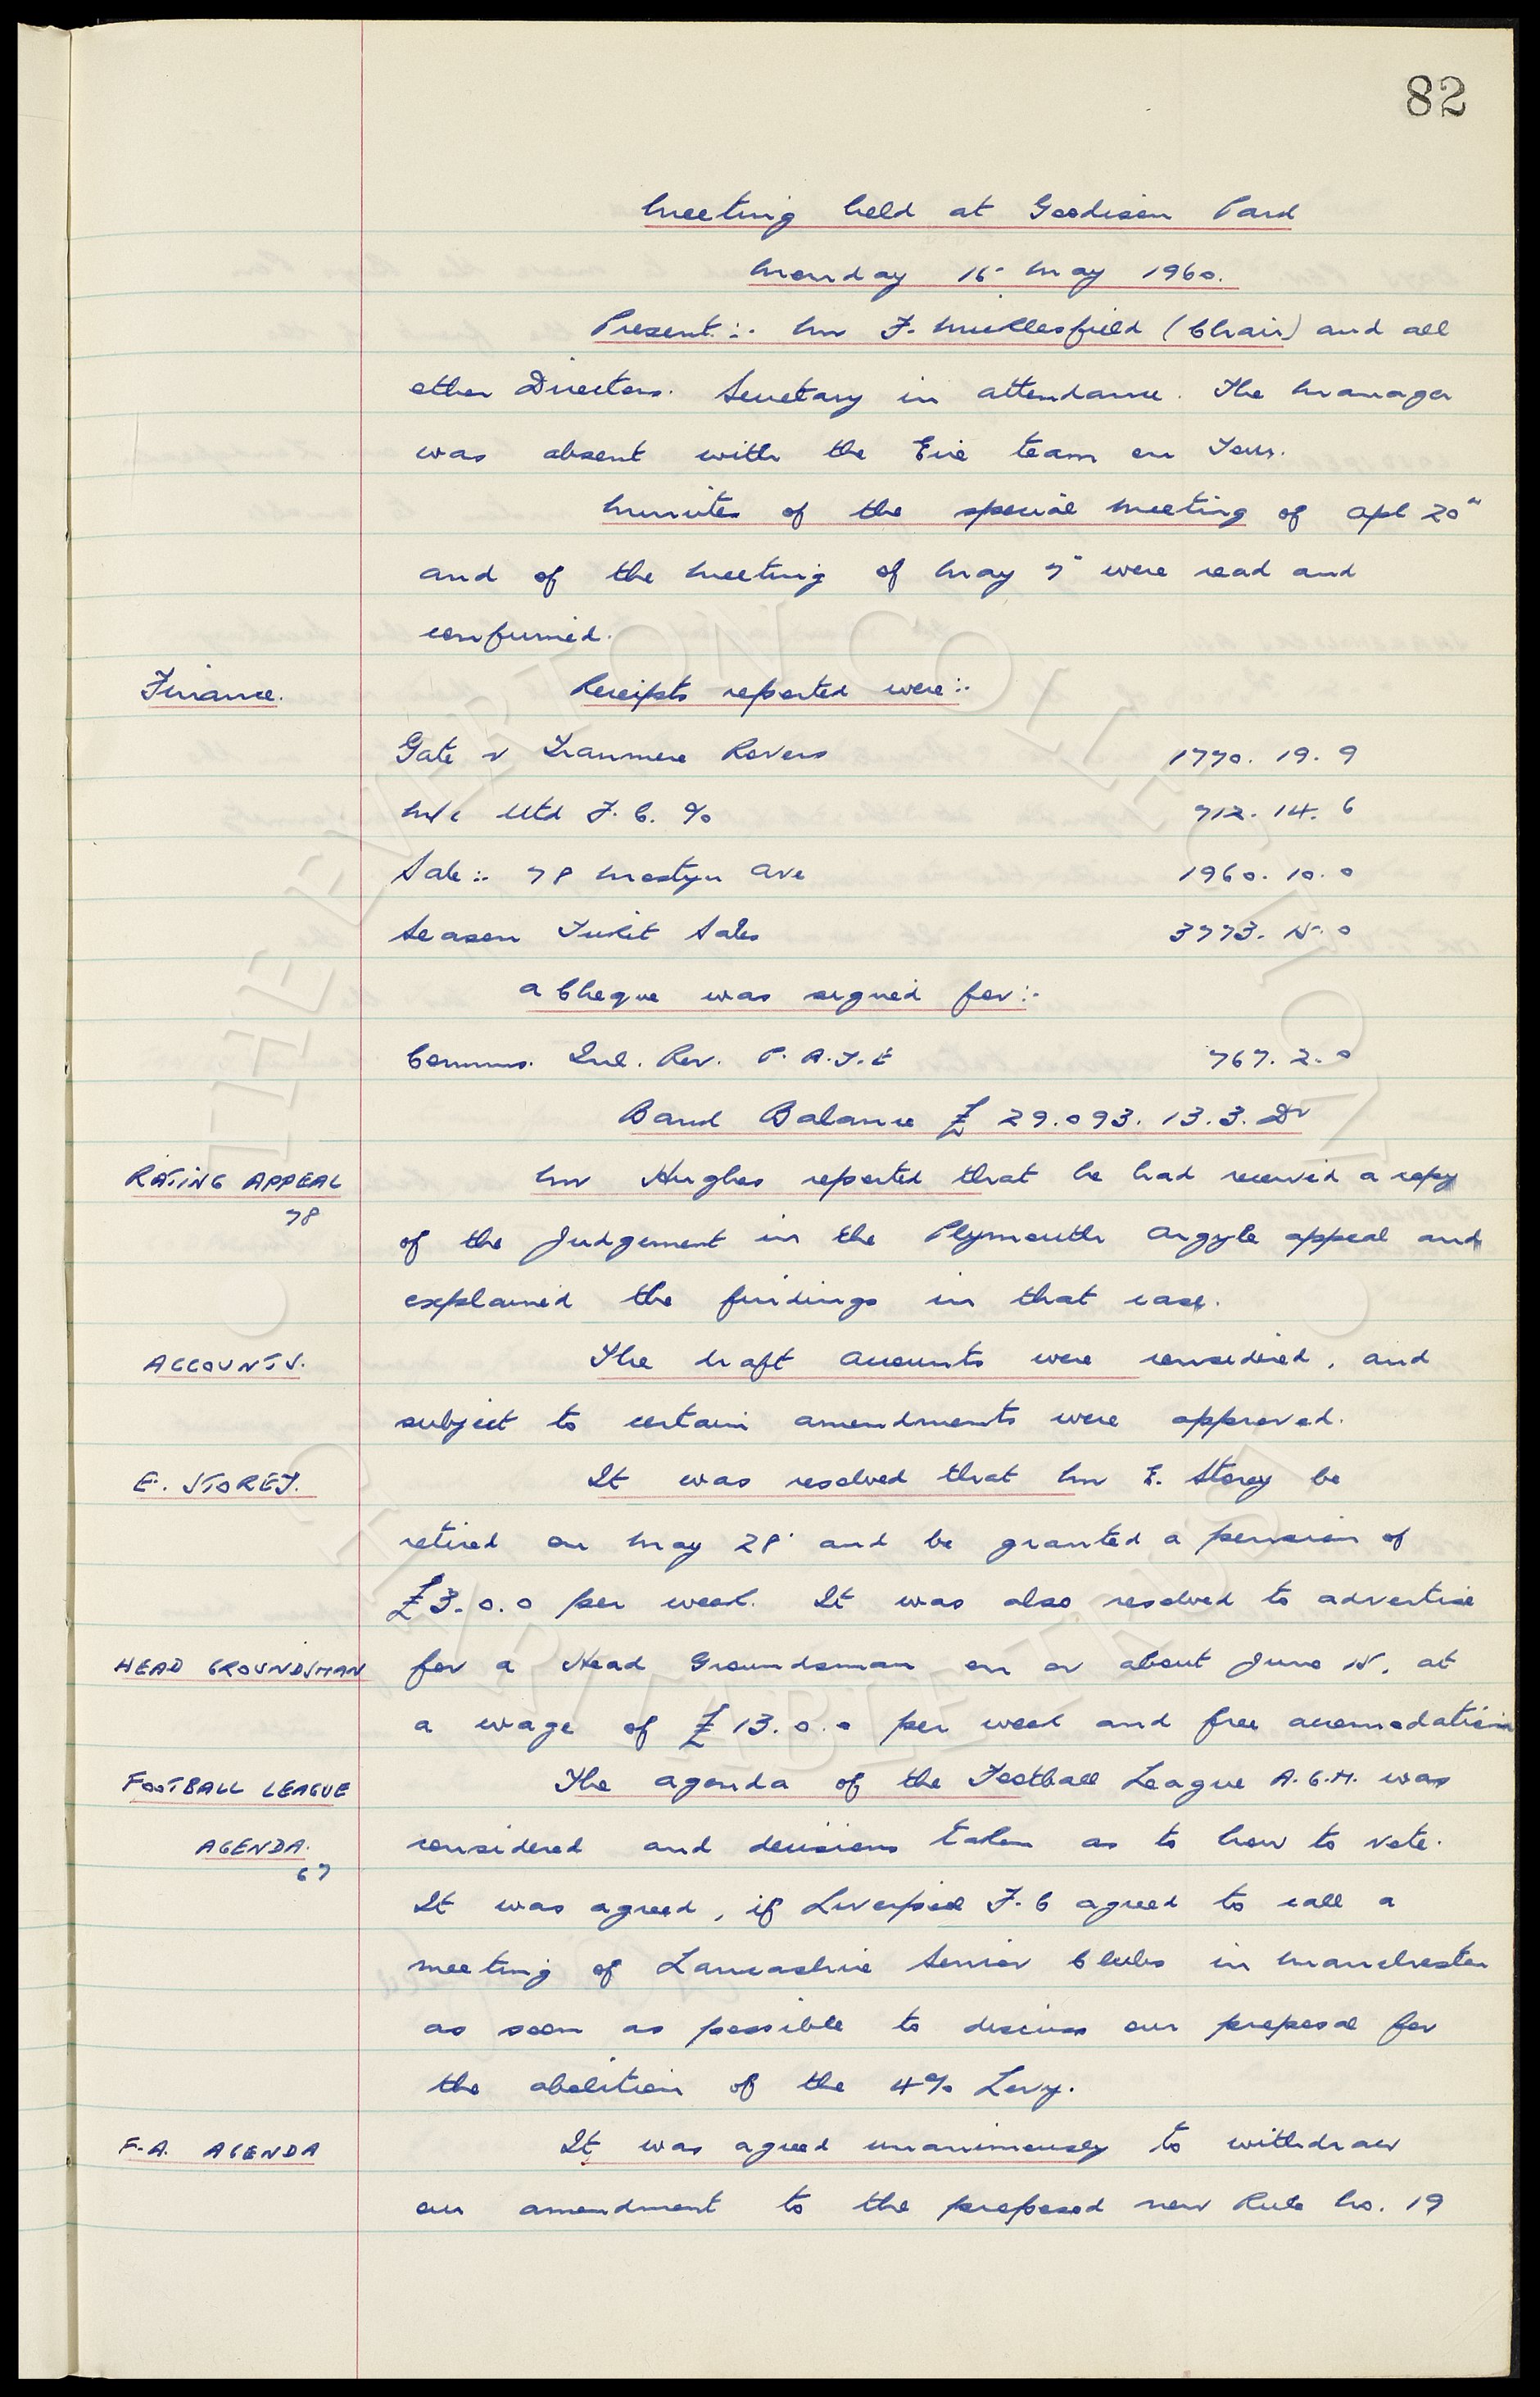 82
Meeting held at Goodison Park
Monday 16" May 1960.
Present:- Mr F. Micklesfield (Chair) and all
other Directors. Secretary in attendance. The Manager
was absent with the Eire team on Tour.
Minutes of the special meeting of Apl 20"
and of the Meeting of May 7" were read and
confirmed.
Finance. Receipts reported were:-
Gate v Tranmere Rovers 1770. 19. 9
M/c Utd F.C. % 712. 14. 6
Sale:- 78 Mostyn Ave 1960. 10. 0
Season Ticket Sales 3773. 15. 0
A Cheque was signed for:-
Comms. Inl. Rev. P.A.Y.E 767. 2. 0
Bank Balance £ 29.093. 13. 3. Dr
RATING APPEAL Mr Hughes reported that he had received a copy
78
of the Judgement in the Plymouth Argyle appeal and
explained the findings in that case.
ACCOUNTS. The draft accounts were considered, and
subject to certain amendments were approved.
E. STOREY. It was resolved that Mr E. Storey be
retired on May 28" and be granted a pension of
£3. 0. 0 per week. It was also resolved to advertise
HEAD GROUNDSMAN for a Head Groundsman on or about June 15, at
a wage of £13. 0. 0 per week and free accomodation
FOOTBALL LEAGUE The agenda of the Football League A.G.M. was
AGENDA. considered and decisions taken as to how to vote.
67
It was agreed, if Liverpool F.C agreed to call a
meeting of Lancashire Senior Clubs in Manchester
as soon as possible to discuss our proposal for
the abolition of the 4% Levy.
F.A. AGENDA It was agreed unanimously to withdraw
our amendment to the proposed new Rule No. 19
THE EVERTON COLLECTION
CHARITABLE TRUST